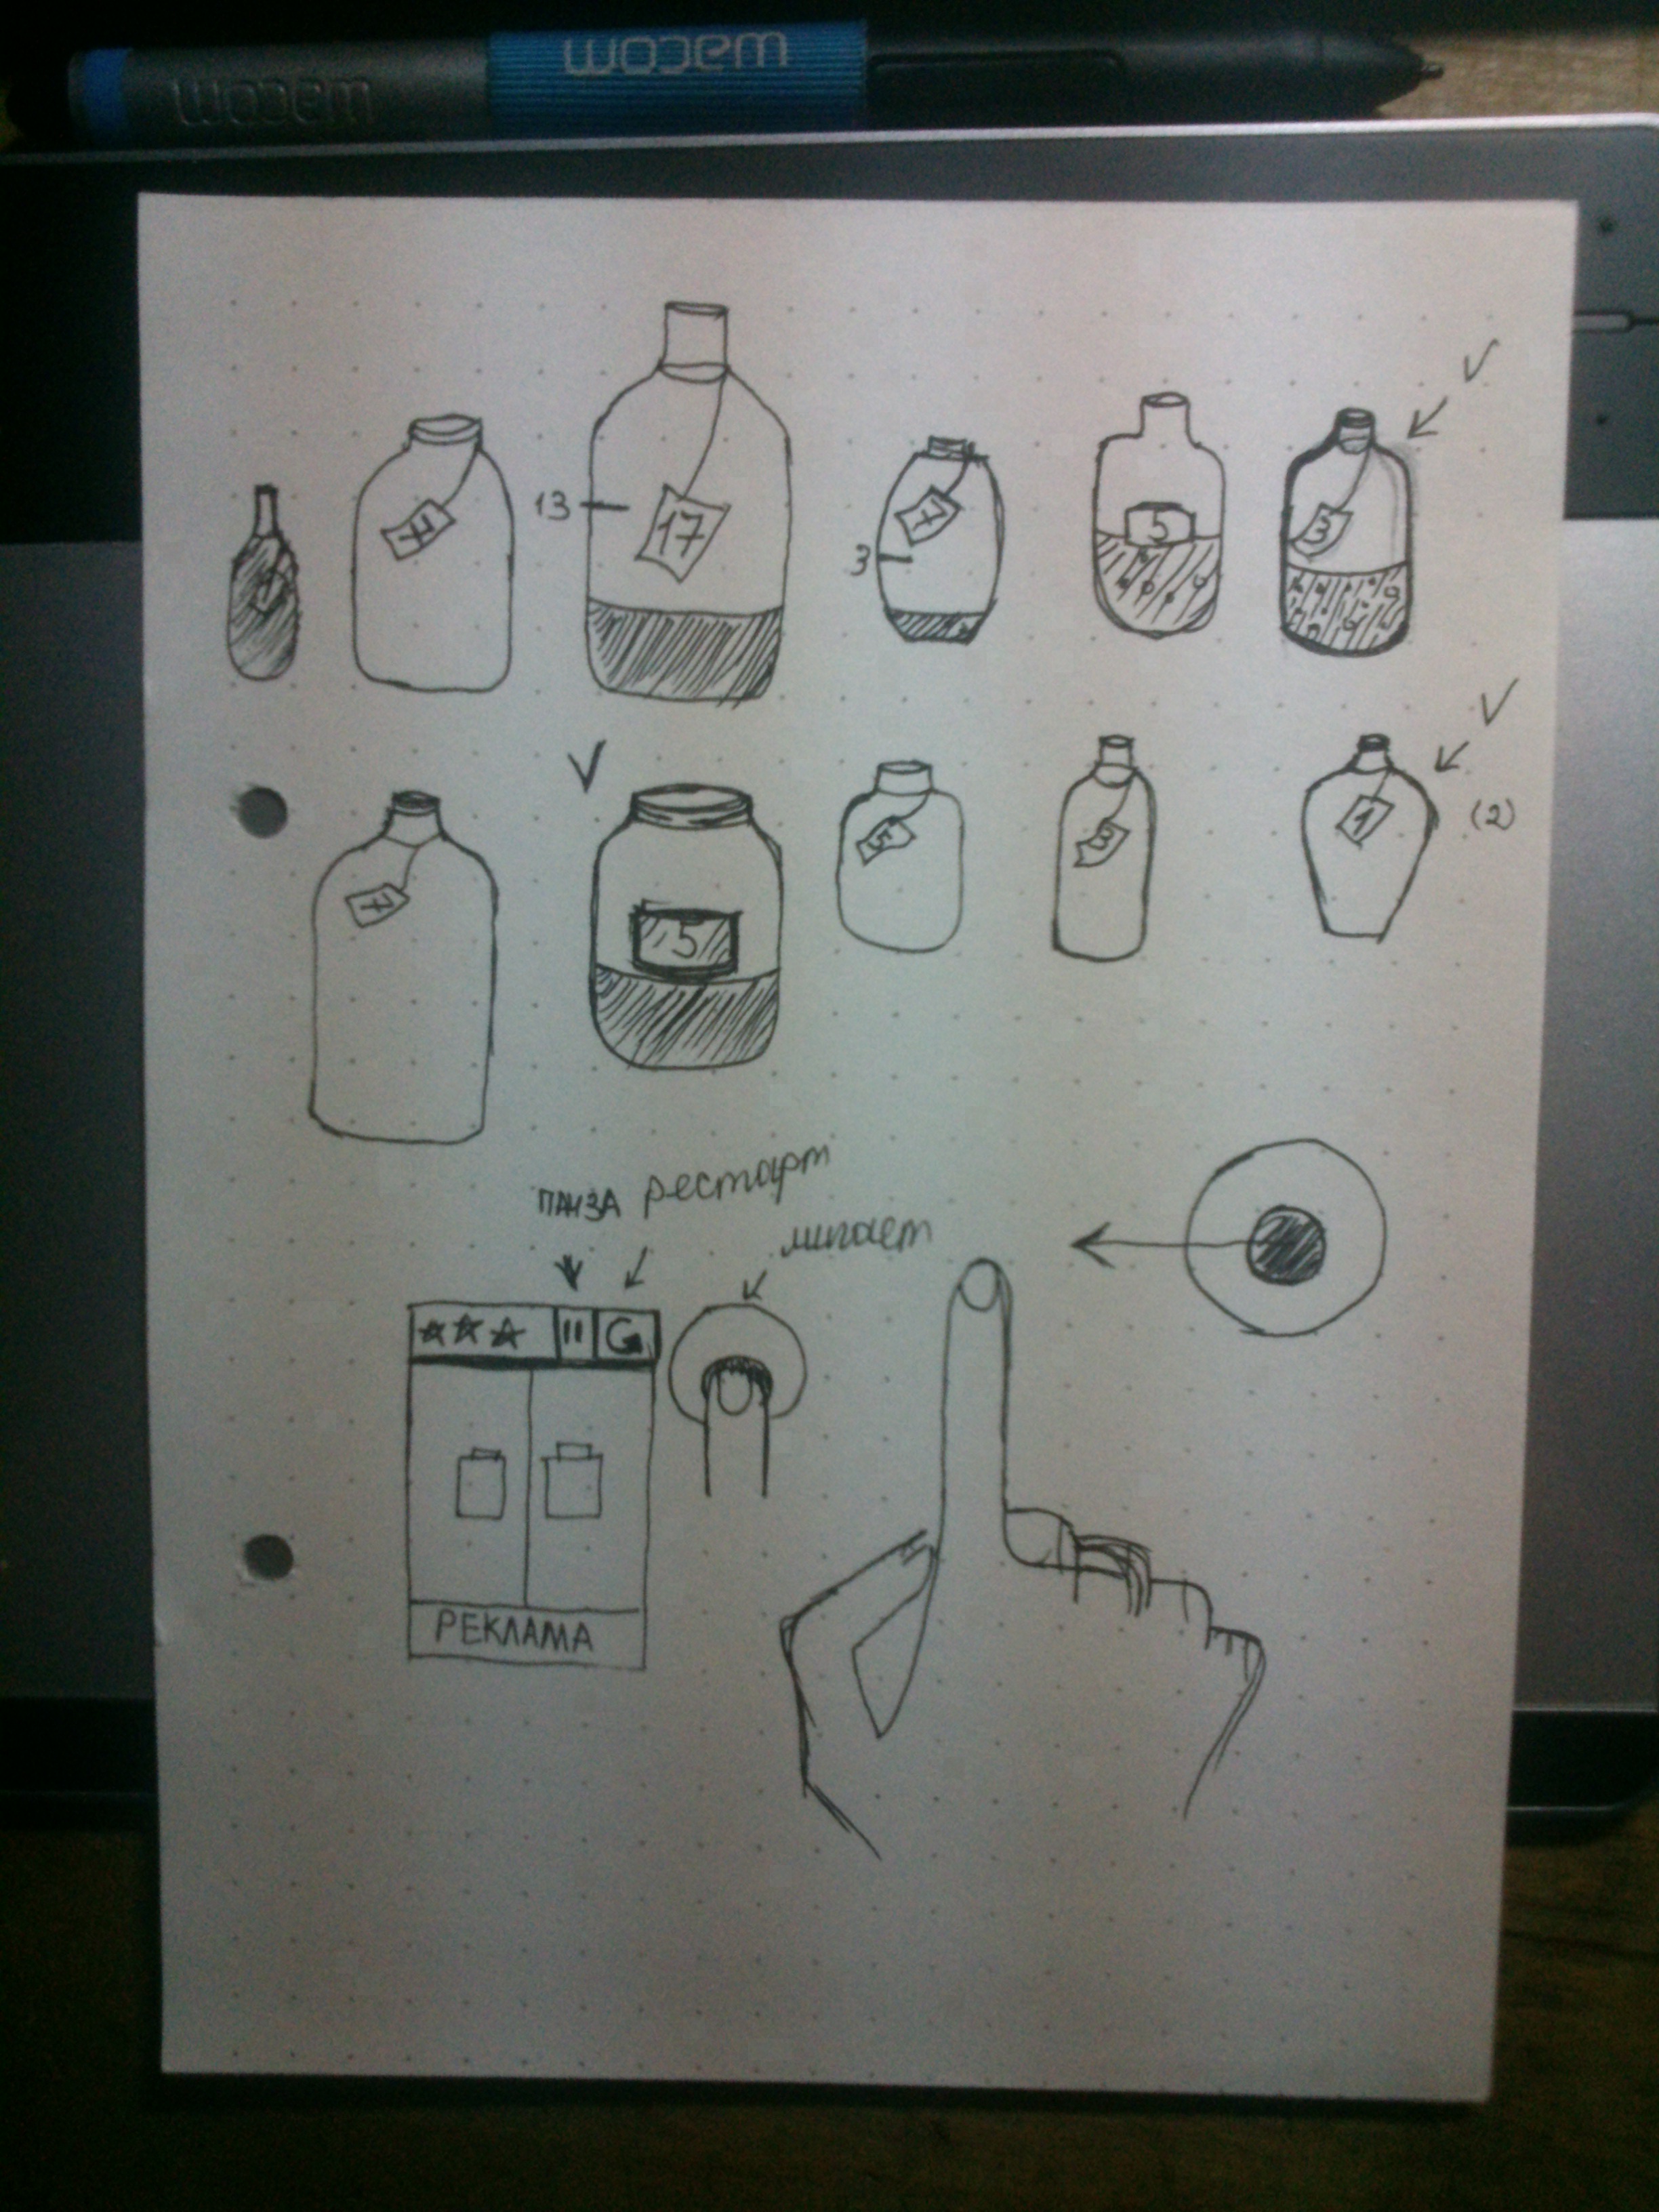 wacom
wacom
13
17
7
3
5
3
5
5
1
(2)
ПАУЗА рестарт
мигает
РЕКЛАМА